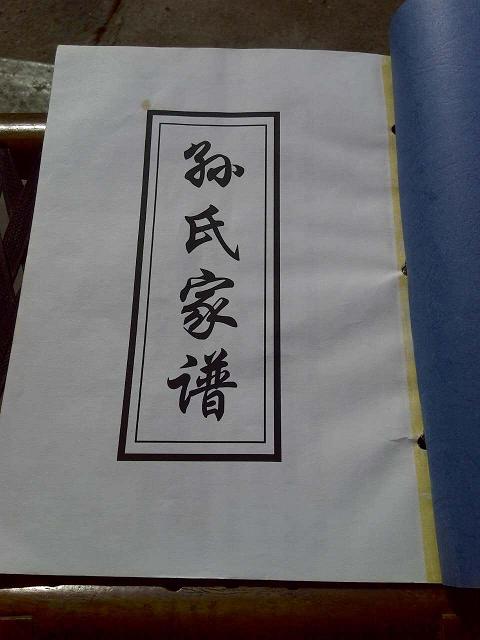 孙氏家谱